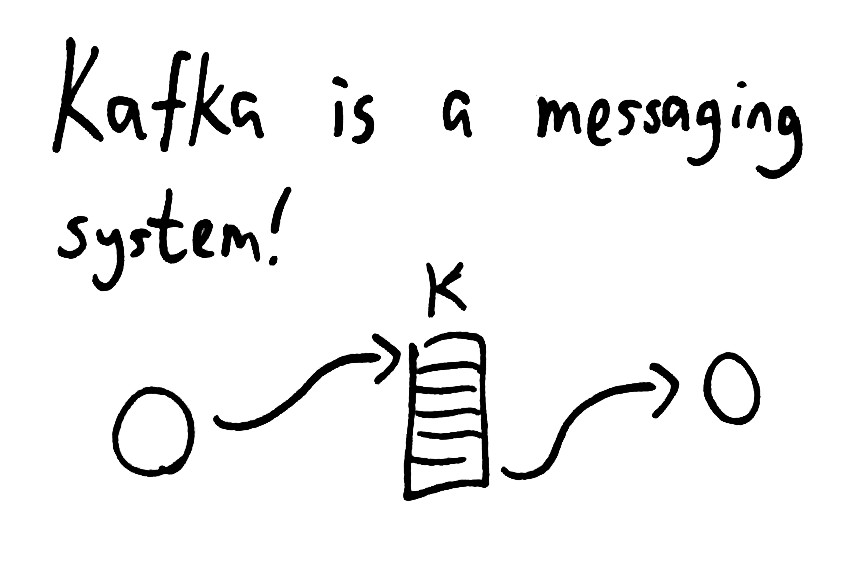 Kafka is a messaging
system!
K